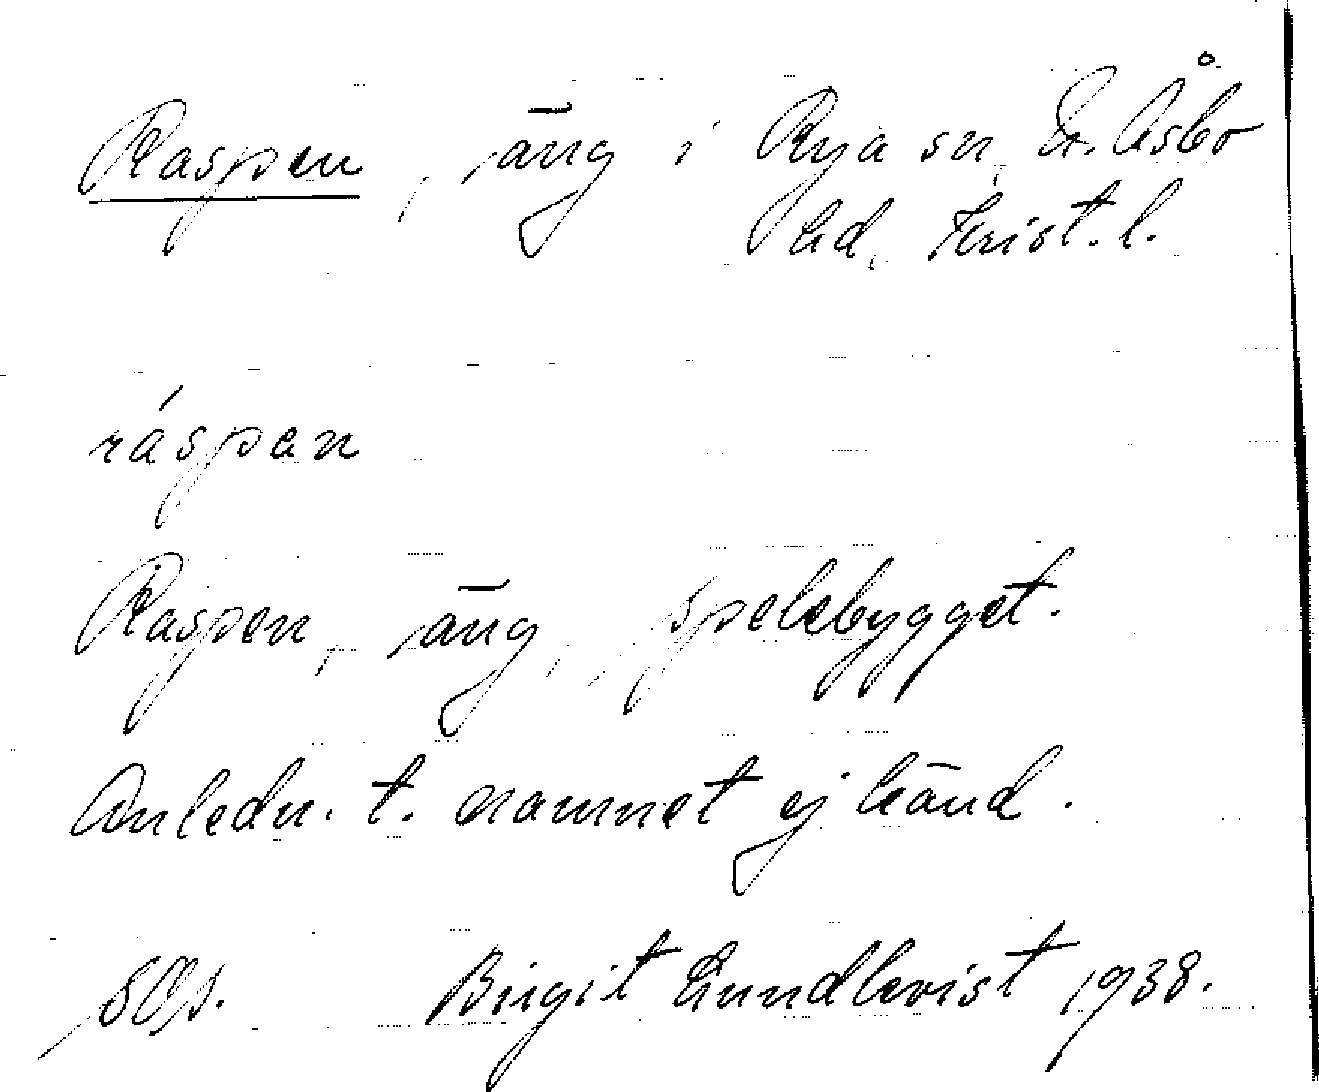 Raspen, äng i Rya sn, N. Åsbo
hd, Krist. l.
ráspan
Raspen, äng, Spelebygget.
Anledn. t. namnet ej känd.
Birgit Lundkvist 1938.